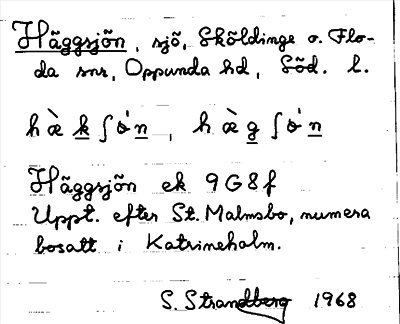 Häggsjön, sjö, Sköldinge o. Flo-
da snr, Oppunda hd, Söd. l.
hæ̀kʃȯ́n, hæ̀gʃȯ́n
Häggsjön ek 9G8f
Uppt. efter St. Malmsbo, numera
bosatt i Katrineholm.
S. Strandberg 1968